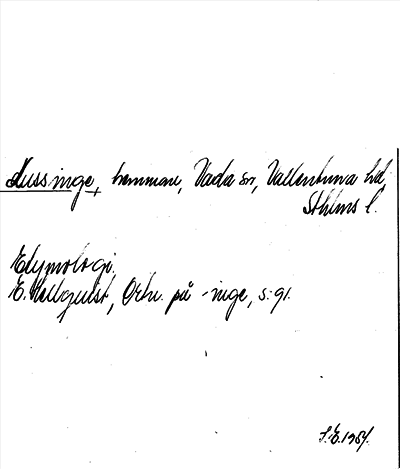 Lussinge, hemman, Vada sn, Vallentuna hd,
Sthlms l.
Etymologi.
E. Hellquist, Ortn. på -inge, s. 91.
S.E. 1954.